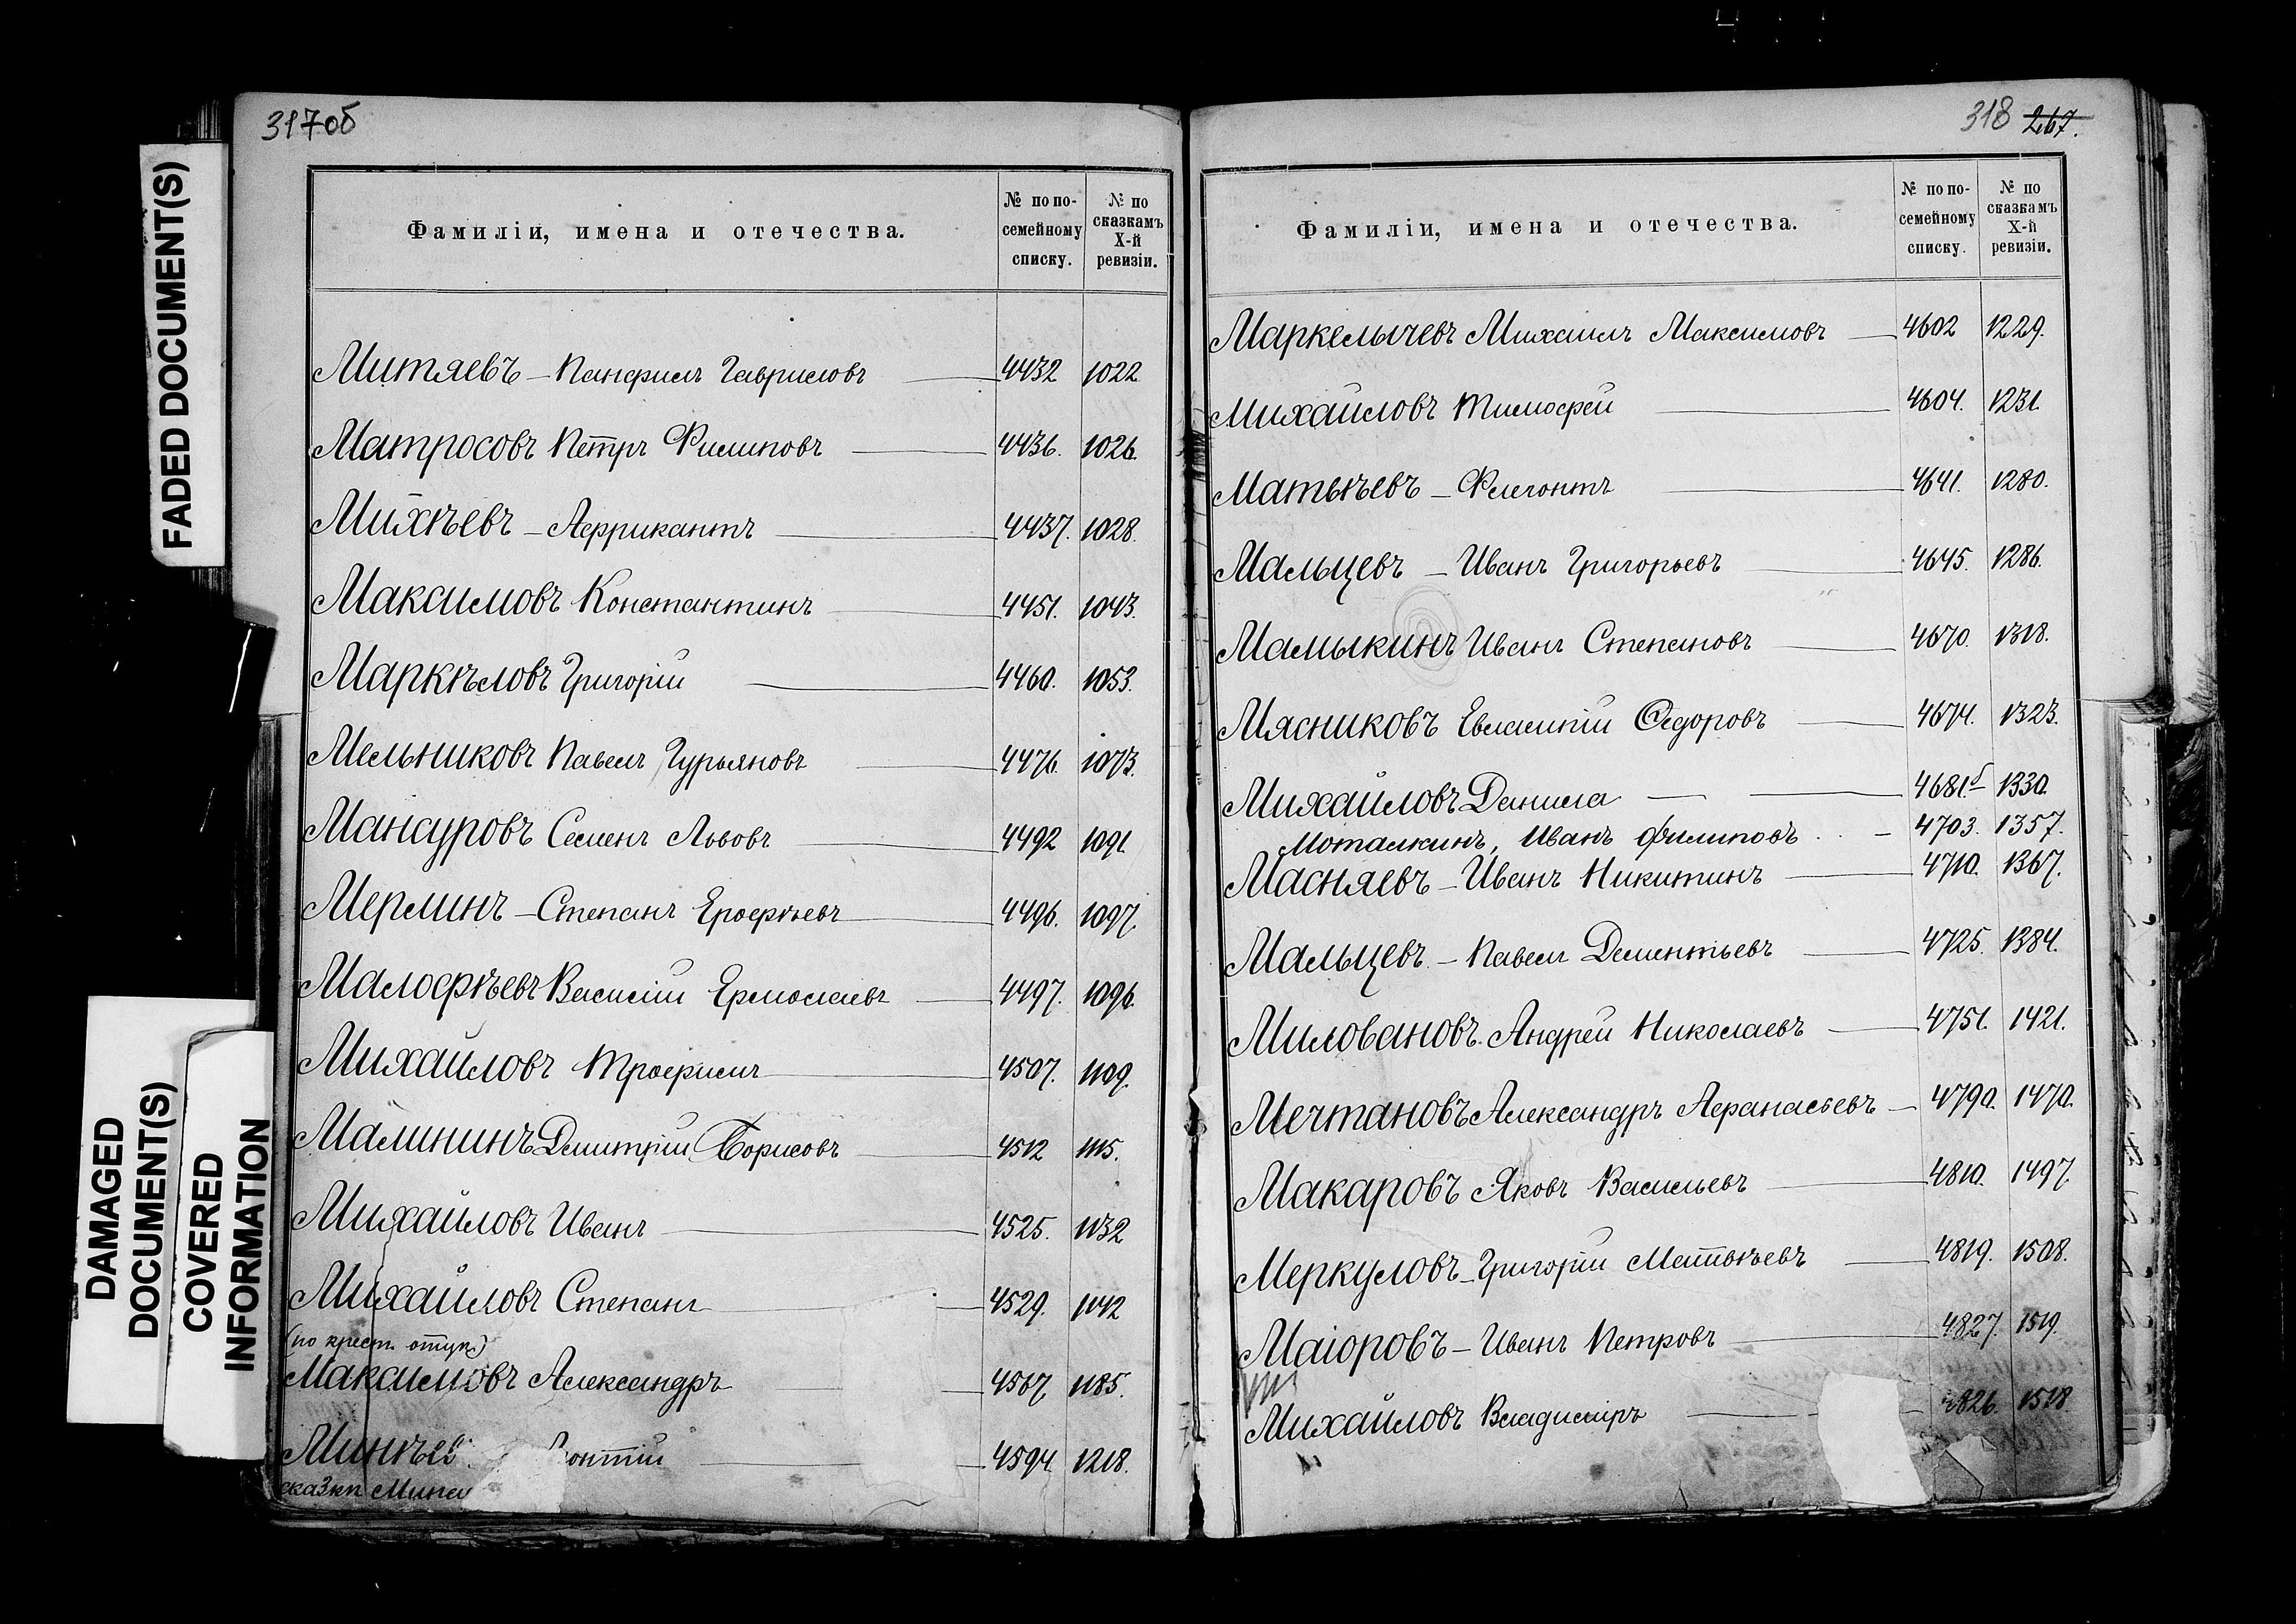 317об
Фамиліи, имена и отечества. № по по-семейному списку. № по сказкамъ X-й ревизіи.
Митяевъ – Панфилъ Гавриловъ 4432 1022
Матросовъ Петръ Филиповъ 4436. 1026.
Михѣевъ – Аффрикантъ 4437. 1028.
Максимовъ Константинъ 4451. 1043.
Маркѣловъ Григорій 4460. 1053.
Мельниковъ Павелъ Гурьяновъ 4476. 1073.
Мансуровъ Семенъ Львовъ 4492 1091.
Мерлинъ – Степанъ Ерофѣевъ 4496. 1097.
Малофѣевъ Василій Ермолаевъ 4497. 1096.
Михайловъ Трофимъ 4507. 1109.
Малининъ Дмитрій Борисовъ 4512 1115.
Михайловъ Иванъ 4525. 1132
Михайловъ Степанъ 4529. 1142
(по крест. отцу)
Максимовъ Александръ 4567. 1185.
Минѣев онтій 4594. 1218.
сказки
FADED DOCUMENT(S)
DAMAGED DOCUMENT(S)
COVERED INFORMATION
318 267.
Фамиліи, имена и отечества. № по по-семейному списку. № по сказкамъ X-й ревизіи.
Маркелычевъ Михаилъ Максимовъ 4602 1229.
Михайловъ Тимофей 4604. 1231.
Матвѣевъ – Флегонтъ 4641. 1280.
Мальцевъ – Иванъ Григорьевъ 4645. 1286.
Мамыкинъ Иванъ Степановъ 4670. 1318.
Мясниковъ Евлампій Ѳедоровъ 4674. 1323.
Михайловъ Данила 4681.б 1330.
Моталкинъ, Иванъ Филиповъ 4703. 1357.
Масняевъ – Иванъ Никитинъ 4710. 1367.
Мальцевъ – Павелъ Дементьевъ 4725. 1384.
Миловановъ Андрей Николаевъ 4751. 1421.
Мечтановъ Александръ Афанасьевъ 4790. 1470.
Макаровъ Яковъ Васильевъ 4810. 1497.
Меркуловъ – Григорій Матвѣевъ 4819. 1508.
Маіоровъ – Иванъ Петровъ 4827. 1519.
Михайловъ Владиміръ 4826. 1518